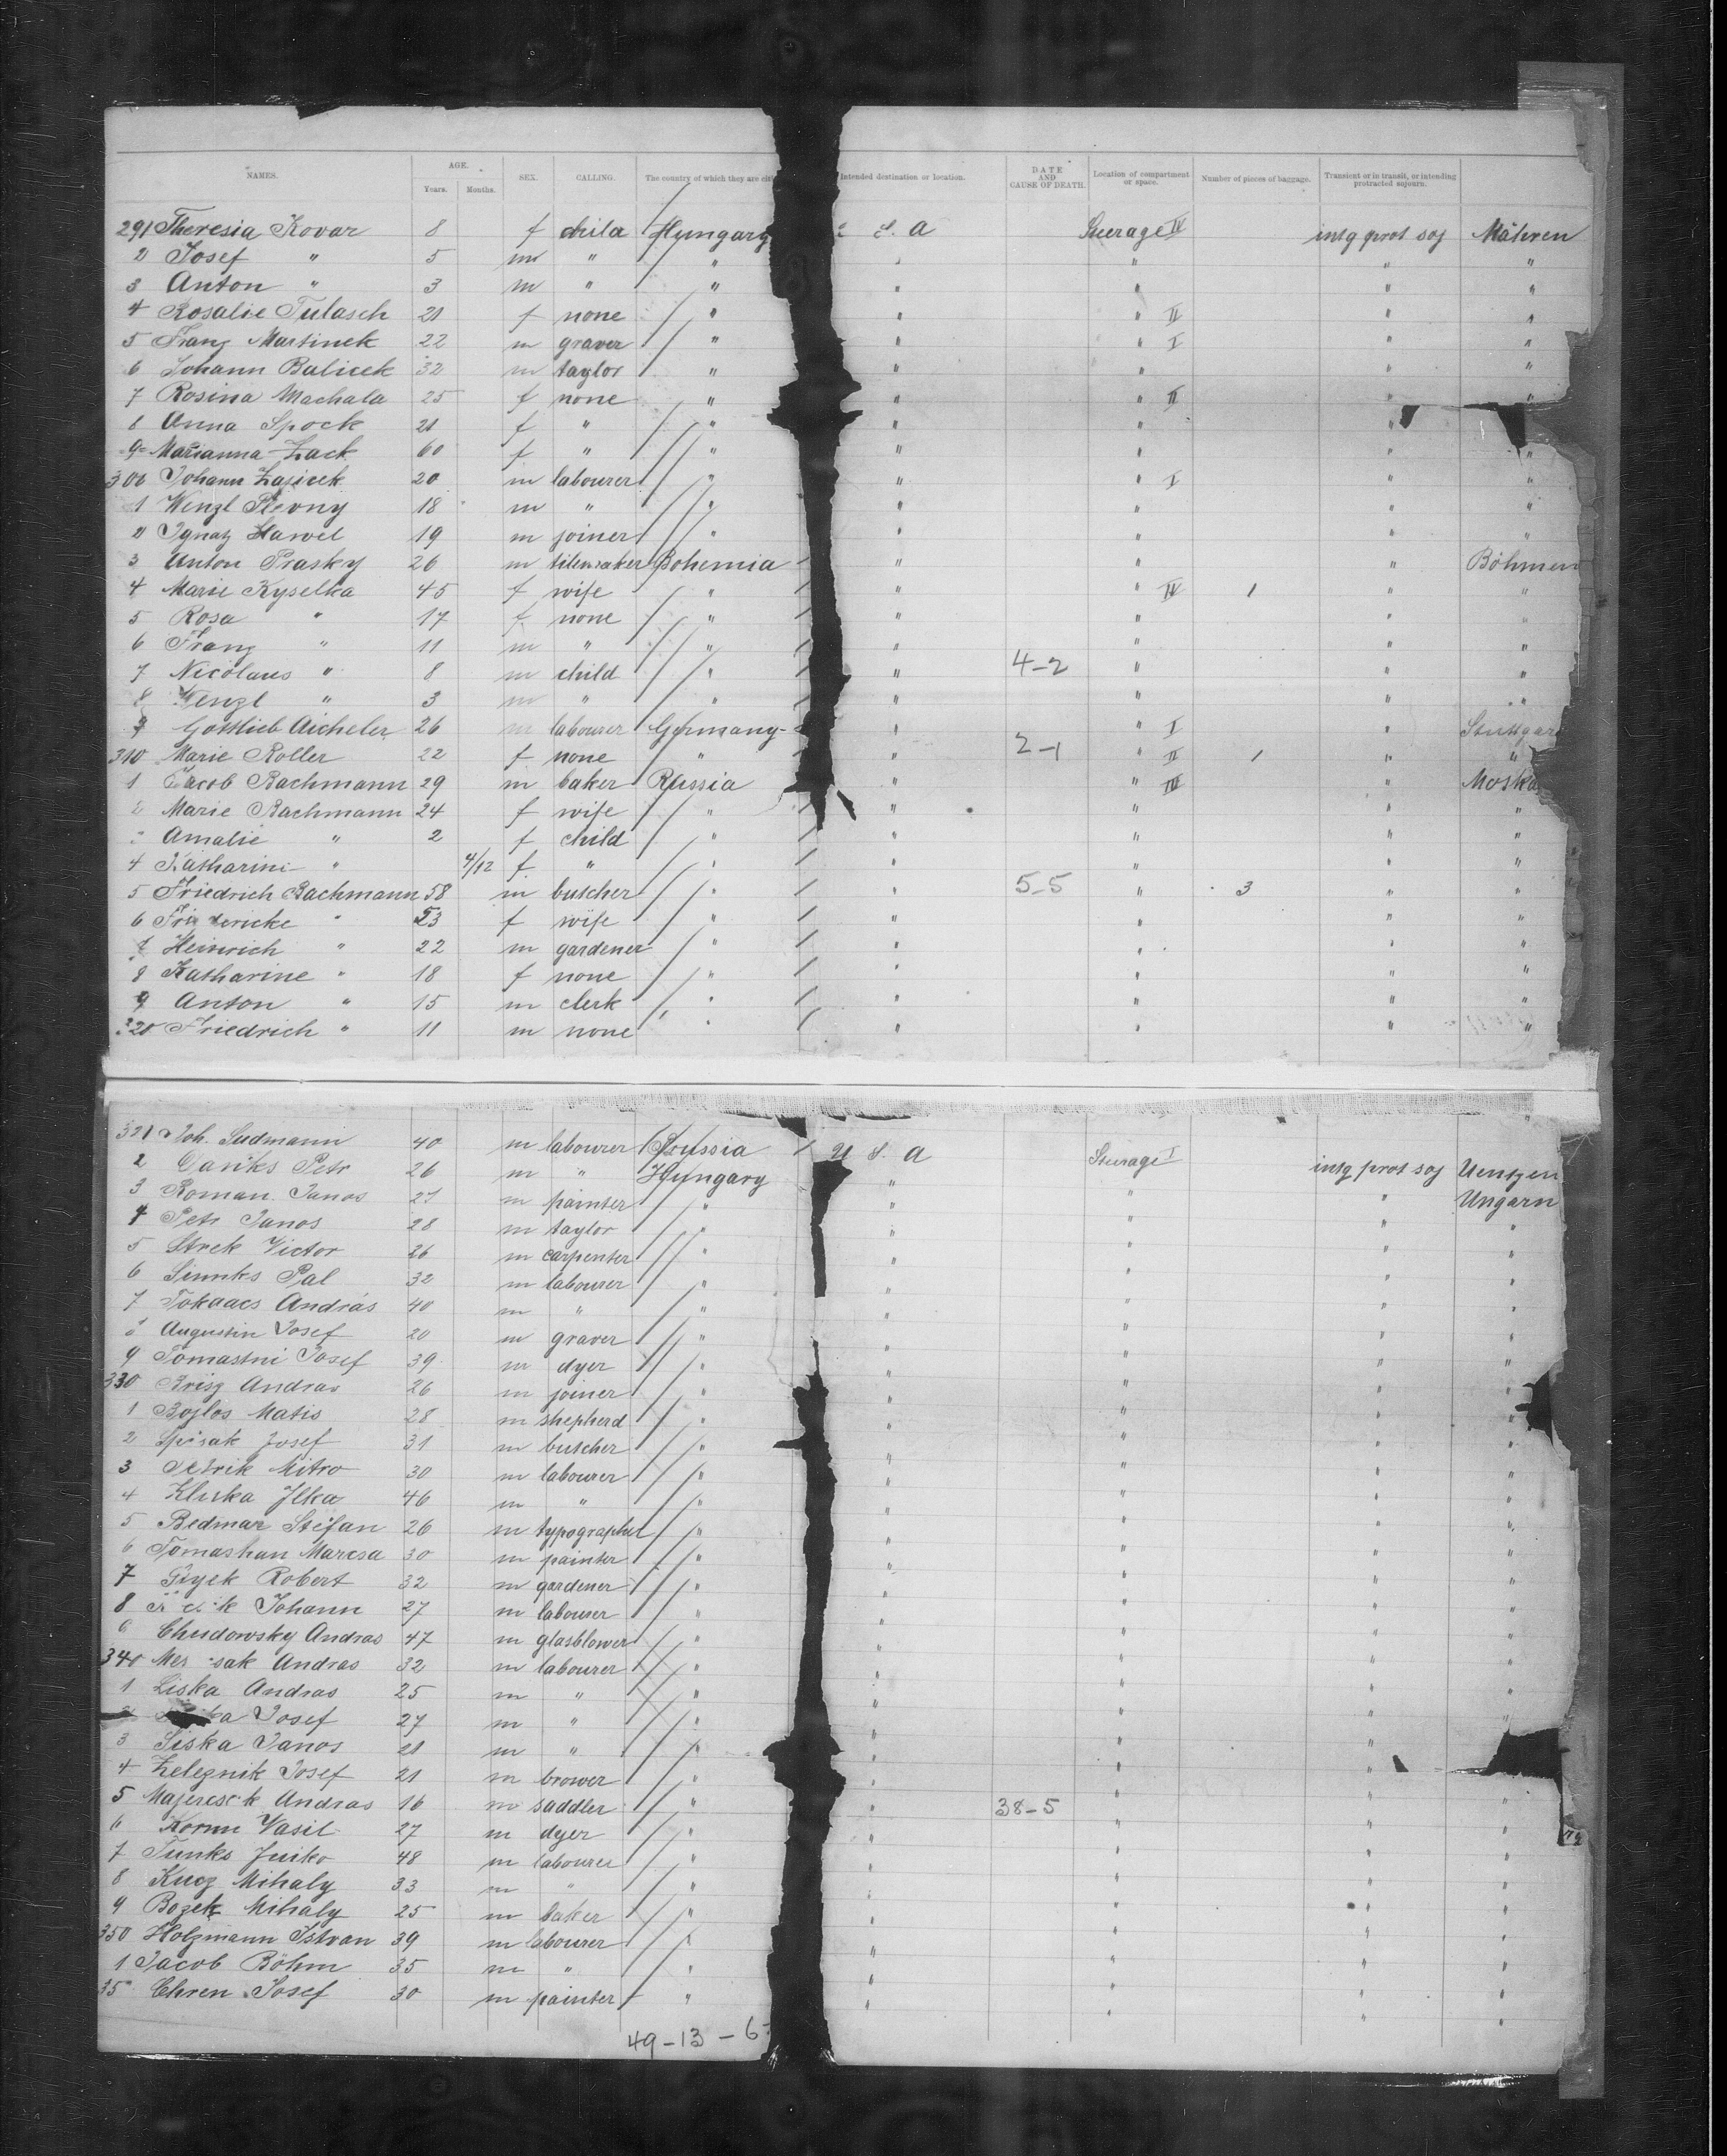 NAMES. AGE. Years. Months. SEX. CALLING. The country of which they are citi Intended destination or location. DATE AND CAUSE OF DEATH. Location of compartment or space. Number of pieces of baggage. Transient or in transit, or intending protracted sojourn.
291 Theresia Kovar 8 f child Hungary S. A Steerage IV intg prot soj Mähren
2 Josef " 5 m " " " " " "
3 Anton " 3 m " " " " " "
4 Rosalie Tulasch 21 f none " " " II " "
5 Franz Martinek 22 m graver " " " I " "
6 Johann Balicek 32 m taylor " " " " "
7 Rosina Machala 25 f none " " " II " "
8 Anna Spock 21 f " " " " "
9 Marianna Zack 60 f " " " " " "
300 Johann Zajicek 20 m labourer " " " I " "
1 Wenzl Pevny 18 m " " " " " "
2 Ignatz Hawel 19 m joiner " " " " "
3 Anton Prasky 26 m tilemaker Bohemia " " " Böhmen
4 Marie Kyselka 45 f wife " " " IV 1 " "
5 Rosa " 17 f none " " " " "
6 Franz " 11 m " " " " " "
7 Nicolaus " 8 m child " " 4-2 " " "
8 Wenzl " 3 m " " " " " "
9 Gottlieb Aicheler 26 m labourer Germany " " I " Stuttgar
310 Marie Roller 22 f none " " 2-1 " II 1 " "
1 Jacob Bachmann 29 m baker Russia " " III " Moska
2 Marie Bachmann 24 f wife " " " " "
Amalie " 2 f child " " " " "
4 Katharine " 4/12 f " " " " " "
5 Friedrich Bachmann 58 m butcher " " 5-5 " 3 " "
6 Friedericke " 53 f wife " " " " "
7 Heinrich " 22 m gardener " " " " "
8 Katharine " 18 f none " " " " "
9 Anton " 15 m clerk " " " " "
320 Friedrich " 11 m none " " " " "
321 Joh. Sudmann 40 m labourer Prussia U S. A Steerage I intg prot soj Uentzen
2 Dariks Petr 26 m " Hungary " " " Ungarn
3 Roman Janos 27 m painter " " " " "
4 Petr Janos 28 m taylor " " " " "
5 Strek Victor 26 m carpenter " " " " "
6 Simnks Pal 32 m labourer " " " " "
7 Tokaacs András 40 m " " " " " "
8 Augustin Josef 20 m graver " " " " "
9 Tomastni Josef 39 m dyer " " " " "
330 Brisz Andras 26 m joiner " " " " "
1 Bojlos Matis 28 m shepherd " " " " "
2 Spisak Josef 31 m butcher " " " " "
3 Petrik Mitro 30 m labourer " " " " "
4 Kliska Ilka 46 m " " " " " "
5 Bedmar Stefan 26 m typographer " " " " "
6 Tomashan Marcsa 30 m painter " " " " "
7 Giyek Robert 32 m gardener " " " " "
8 Johann 27 m labourer " " " " "
9 Chudowsky Andras 47 m glasblower " " " " "
340 Mer sak Andras 32 m labourer " " " " "
1 Liska Andras 25 m " " " " " "
ka Josef 27 m " " " " " "
3 Siska Janos 21 m " " " " "
4 Zeleznik Josef 21 m brower " " " " "
5 Majercsik Andras 16 m saddler " " 38-5 " " "
6 Kornn Vasil 27 m dyer " " " " "
7 Tunks Juiko 48 m labourer " " " " "
8 Kucz Mihaly 33 m " " " " " "
9 Bozek Mihaly 25 m baker " " " " "
350 Holzmann Istvan 39 m labourer " " " " "
1 Jacob Böhm 35 m " " " " " "
35 Chren Josef 30 m painter " " " " "
49-13-6